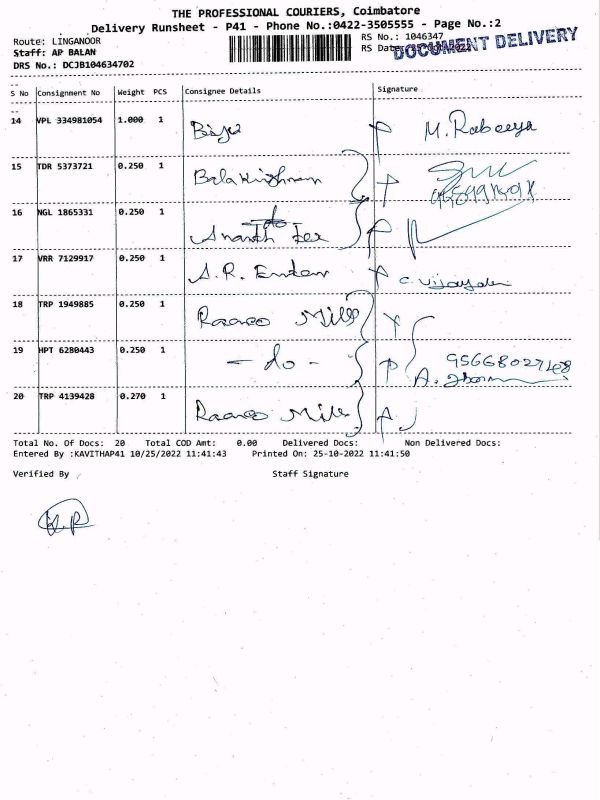 THE PROFESSIONAL COURIERS, Coimbatore
Delivery Runsheet - P41 - Phone No.:0422-3505555 - Page No.:2
Route: LINGANOOR
Staff: AP BALAN
DRS No.: DCJB104634702
RS No.: 1046347
RS Date: 25-Oct-2022
DOCUMENT DELIVERY
S No Consignment No Weight PCS Consignee Details Signature
14 VPL 334981054 1.000 1 M. Rabeeya
15 TDR 5373721 0.250 1 Balakrishnan
16 NGL 1865331 0.250 1 Ananth Tex
17 VRR 7129917 0.250 1 A.R. C. Vijaya
18 TRP 1949885 0.250 1 Mills
19 HPT 6280443 0.250 1 - do - A.
20 TRP 4139428 0.270 1 Mills
Total No. Of Docs: 20 Total COD Amt: 0.00 Delivered Docs: Non Delivered Docs:
Entered By :KAVITHAP41 10/25/2022 11:41:43 Printed On: 25-10-2022 11:41:50
Verified By Staff Signature